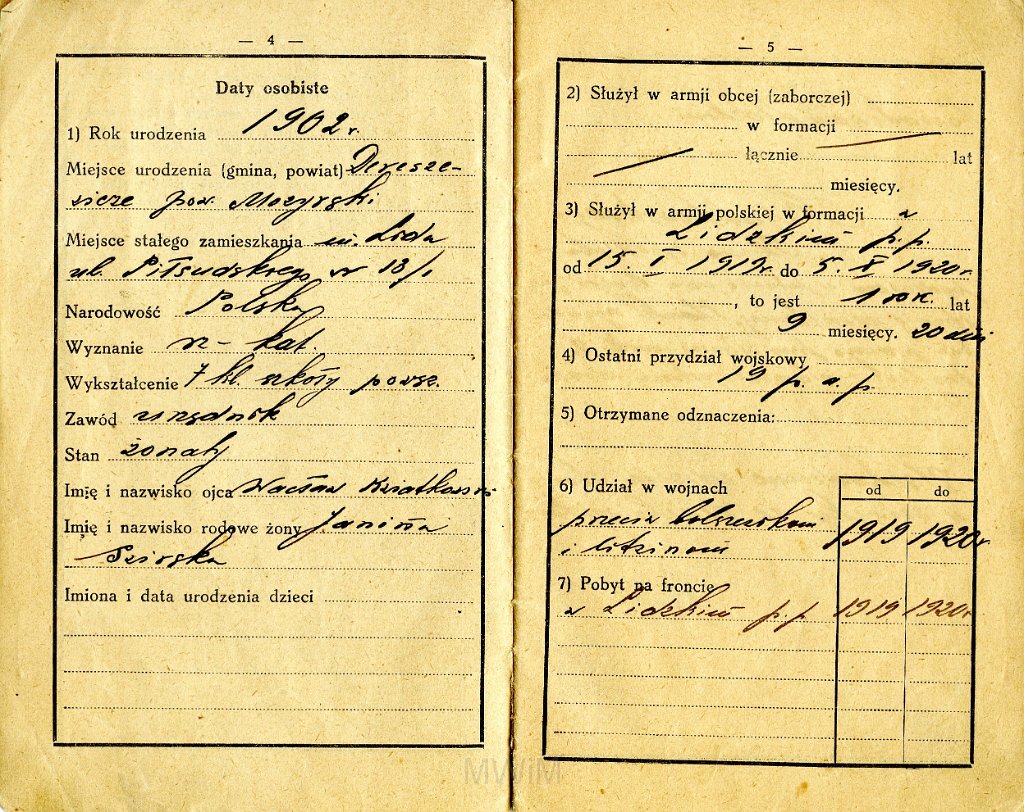 — 4 —
Daty osobiste
1) Rok urodzenia 1902 r.
Miejsce urodzenia (gmina, powiat) Deresze-
wicze pow. Mozyrski
Miejsce stałego zamieszkania m. Lida
ul. Piłsudskiego nr 18/1
Narodowość Polska
Wyznanie rz-kat.
Wykształcenie 7 kl. szkoły powsz.
Zawód urzędnik
Stan żonaty
Imię i nazwisko ojca Wacław Kwiatkowski
Imię i nazwisko rodowe żony Janina
Imiona i data urodzenia dzieci
— 5 —
2) Służył w armji obcej (zaborczej)
w formacji —
— łącznie lat
miesięcy.
3) Służył w armji polskiej w formacji w
Lidzkim p.p.
od 15. I 1919 r. do 5. X 1920 r.
, to jest 1 rok lat
9 miesięcy. 20 dni
4) Ostatni przydział wojskowy
19 p. a. p.
5) Otrzymane odznaczenia:
6) Udział w wojnach od do
przeciw bolszewikom 1919 1920 r
i litwinom
7) Pobyt na froncie
w Lidzkim p.p 1919 1920 r
MWiM